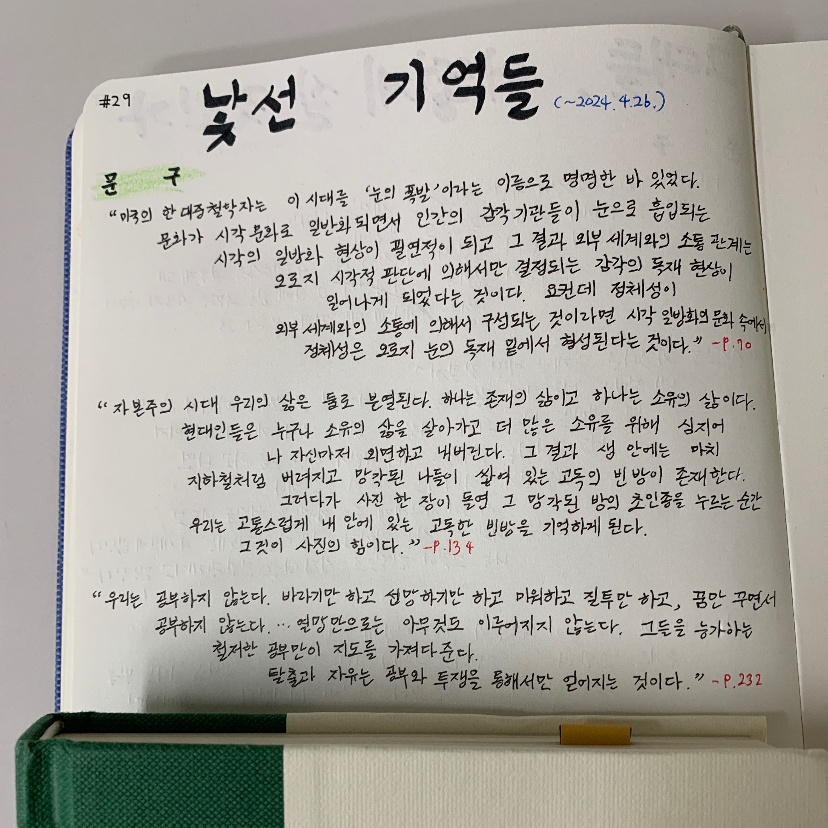 #29
낯선 기억들 (~2024.4.26.)
문 구
"미국의 한 대중철학자는 이 시대를 '눈의 폭발'이라는 이름으로 명명한 바 있었다.
문화가 시각문화로 일반화되면서 인간의 감각기관들이 눈으로 흡입되는
시각의 일방화 현상이 필연적이 되고 그 결과 외부 세계와의 소통 관계는
오로지 시각적 판단에 의해서만 결정되는 감각의 독재 현상이
일어나게 되었다는 것이다. 요컨데 정체성이
외부 세계와의 소통에 의해서 구성되는 것이라면 시각 일방화의 문화 속에서
정체성은 오로지 눈의 독재 밑에서 형성된다는 것이다." -P.70
"자본주의 시대 우리의 삶은 둘로 분열된다. 하나는 존재의 삶이고 하나는 소유의 삶이다.
현대인들은 누구나 소유의 삶을 살아가고 더 많은 소유를 위해 심지어
나 자신마저 외면하고 내버린다. 그 결과 생 안에는 마치
지하철처럼 버려지고 망각된 나들이 쌓여 있는 고독의 빈 방이 존재한다.
그러다가 사진 한 장이 돌연 그 망각된 방의 초인종을 누르는 순간
우리는 고통스럽게 내 안에 있는 고독한 빈방을 기억하게 된다.
그것이 사진의 힘이다." -P.134
"우리는 공부하지 않는다. 바라기만 하고 선망하기만 하고 미워하고 질투만 하고, 꿈만 꾸면서
공부하지 않는다. … 열망만으로는 아무것도 이루어지지 않는다. 그들을 능가하는
철저한 공부만이 지도를 가져다준다.
탈출과 자유는 공부와 투쟁을 통해서만 얻어지는 것이다." -P.232